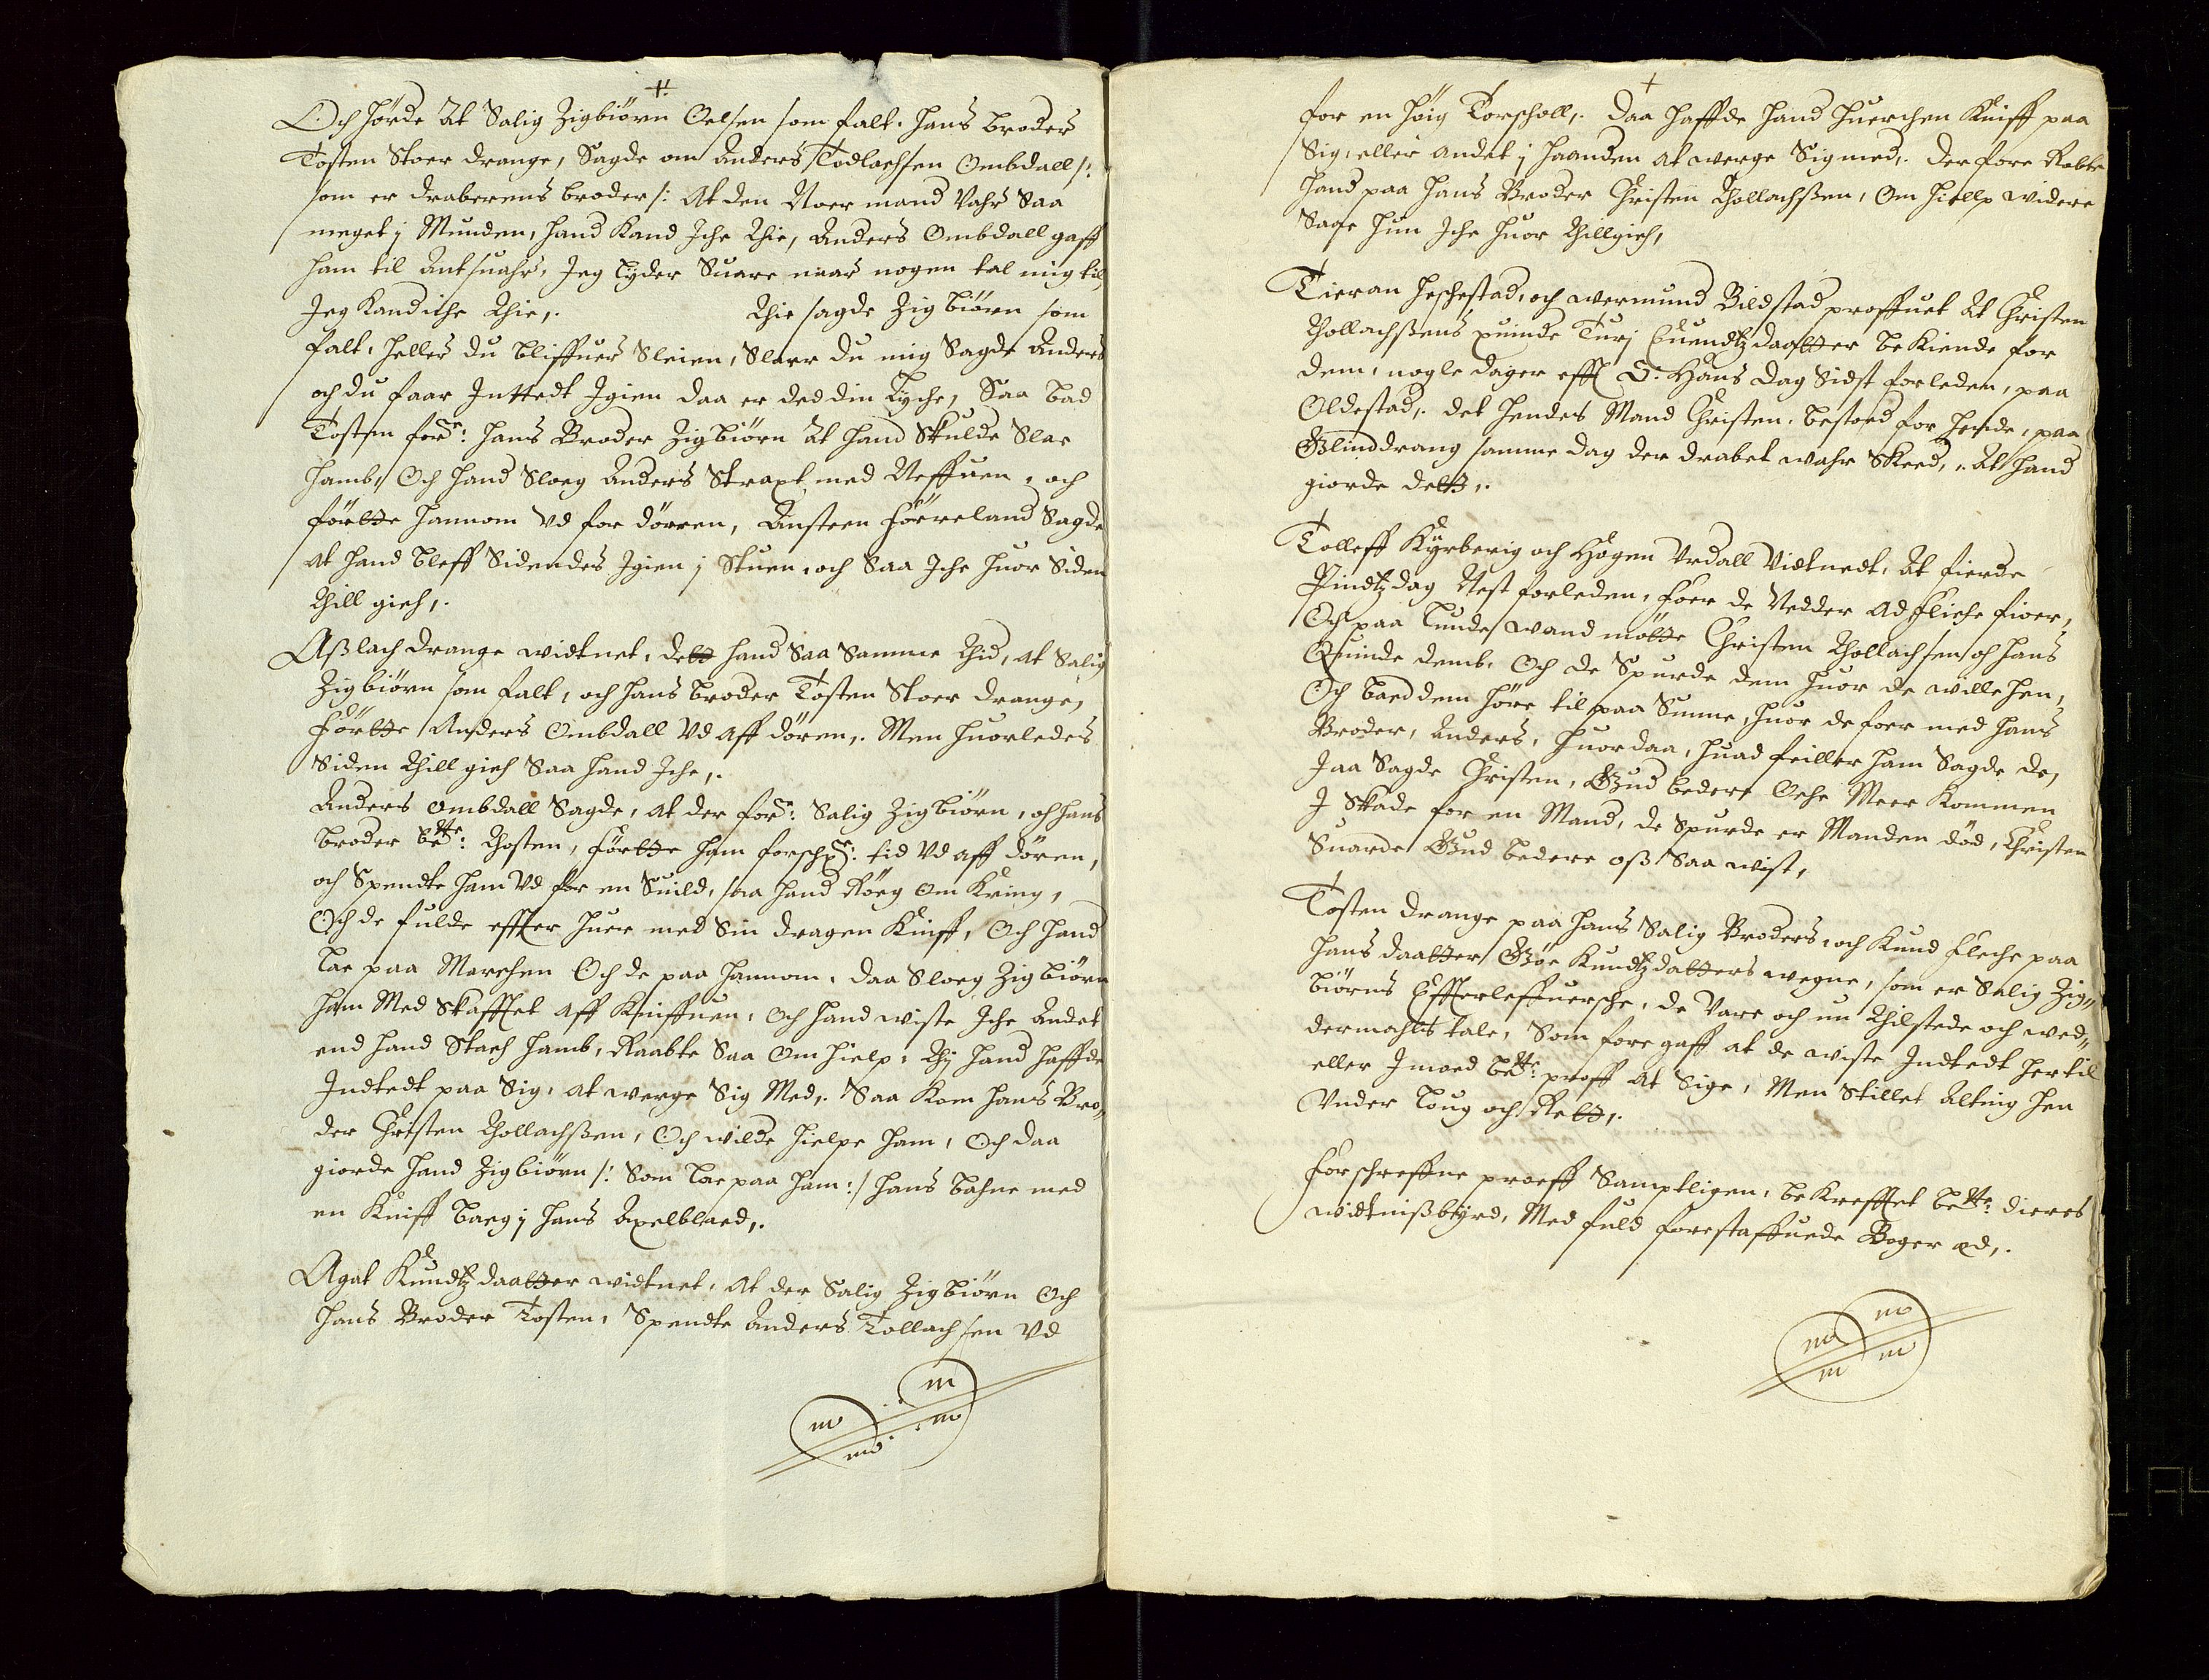 Och hörde At Salig Zigbiörn Oelsen som falt. hans broder
Tosten Stoer drange, Sagde om Anders Todlachsen Ombdall /:
som er draberens broder /: At den Noer mand Vahr Saa
meget j Munden, hand Kand Iche Thie, Anders Ombdall gaff
ham til Antsuahr, Jeg lyder Suare naar nogen tal mig til,
Jeg Kand iche Thie,. Thie sagde Zigbiörn som
falt, heller du bliffuer Sleien, Slaer du mig Sagde Anders
och du faar Inttedt Igien daa er ded din Lyche, Saa bad
Tosten forde: hans Broder Zigbiörn At hand Skulde Slae
hamb, Och hand Sloeg Anders Straxt med Neffuen, och
förtte hannom Vd for dörren, Ansteen Förreland Sagde
at hand bleff Sidendes Igien j Stuen, och Saa Iche huor Siden
Thill gich,.
Aßlach drange widtnet, dett hand Saa Samme Thid, at Salig
Zigbiörn som falt, och hans broder Tosten Stoer drange,
Förtte Anders Ombdall Vd aff dören,. Men huorledes
Siden Thill gich Saa hand Iche,.
Anders Ombdall Sagde, at der forde: Salig Zigbiörn, och hans
broder bete: Thosten, förtte ham forschr: tid Vd aff dören,
och Spendte ham Vd for en Suild, saa hand Röeg om Kring,
Och de fulde effter huer med Sin dragen Kniff, Och hand
lae paa Marchen Och de paa hannom, daa Sloeg Zigbiörn
ham Med Skafftet aff Kniffuen, Och hand wiste Iche Andet
end hand Stach hamb, Raabte Saa Om hielp, Thj hand haffde
Indtedt paa Sig, at werge Sig Med,. Saa Kom hans Bro„
der Christen Thollachßen, Och wilde hielpe ham, Och daa
giorde hand Zigbiörn /: Som lae paa ham :/ hans bahne med
en Kniff bag j hans Axelblaed,.
Agat Kundtzdaatter widtnet, At der Salig Zigbiörn Och
hans Broder Tosten, Spendte Anders Tollachsen Vd
for en höig Torscholl,. Daa haffde hand huerchen Kniff paa
Sig, eller andet j haanden at werge Sig med,. der fore Robte
hand paa hans Broder Christen Thollachßen, Om hiellp widere
Saae hun Iche huor Thillgich,
Tieran Heschestad, och wermund Bildstad proffuet At Christen
Thollachßens quinde Turj Euendtzdaatter bekiende for
dem, nogle dager efft S: Hans dag Sidst forleden, paa
Oldestad,. det hendes Mand Christen, bestoed for hende, paa
Blinddrang samme dag der drabet wahr Skeed,. At hand
giorde dett,.
Tolleff Kyrberig och Hogen Vrdall Vidtnedt, At fierde
Pindtzdag Nest forleden, foer de Nedder Ad Fliche fioer,
Och paa Lunde wand mötte Christen Thollachsen och hans
Quinde demb, Och de Spurde dem huor de wille hen,
Och baed dem höre til paa Sunne, huor de foer med hans
Broder, Anders, huor daa, huad feiller ham Sagde de,
Jaa Sagde Christen, Gud bedere Oche Meer Kommen
J Skade for en Mand, de Spurde er Manden död, Christen
Suarde Gud bedere oß Saa wist,
Tosten drange paa hans Salig Broders, och Kund Fleche paa
hans daatter Göe Kundtzdatters wegne, som er Salig Zig„
biörns Effterleffuersche, de Vare och nu Thilstede och wed„
dermahls tale, Som fore gaff at de wiste Indtedt hertil
eller Jmoed bete: proff At Sige, Men Stillet Alting hen
Vnder Loug och Rett,.
Forschreffne proeff Samptligen, bekrefftet bete: dieres
widtnißbyrd, Med fuld forestaffuede Boger æd,.